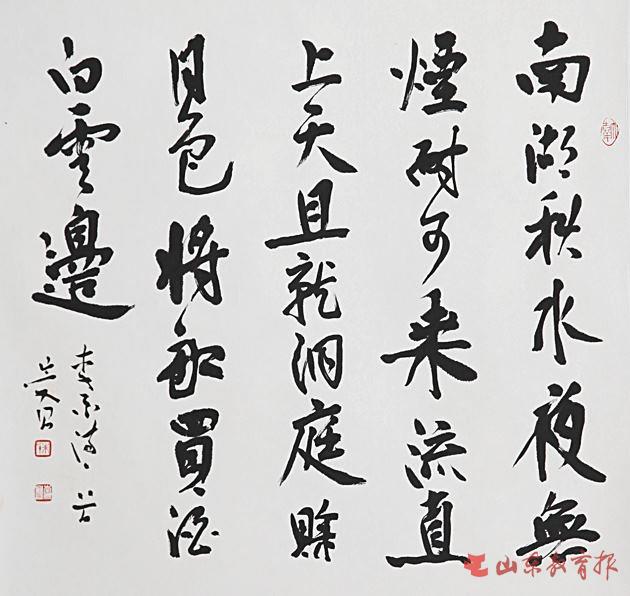 南湖秋水夜無
煙耐可乘流直
上天且就洞庭賒
月色將船買酒
白雲邊
山东教育报